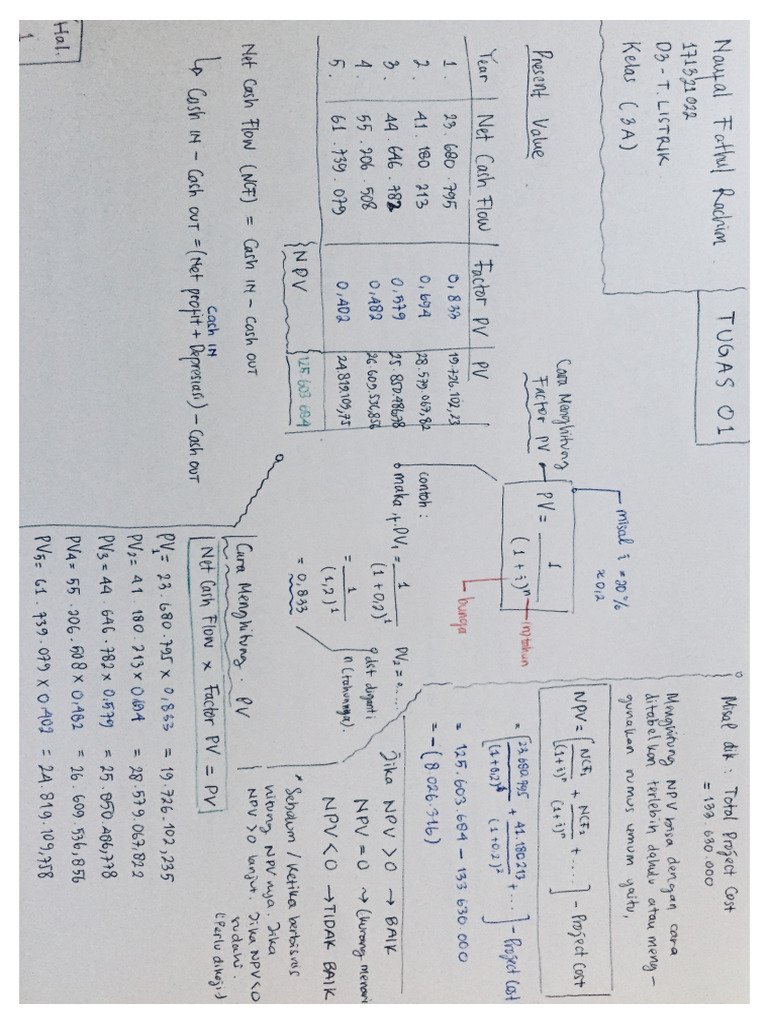 Naufal Fathul Rachim
171321022
D3 - T. LISTRIK
Kelas (3A)
TUGAS 01
Present Value
Year Net Cash Flow Factor PV PV
1. 23.680.795 0,833 19.726.102,23
2. 41 180 213 0,694 28.579.067,82
3. 44.646.782 0,579 25.850.486,78
4. 55.206.508 0,482 26.609.536,856
5. 61.739.079 0,402 24.819.109,75
NPV 125.603.684
Net Cash Flow (NCF) = Cash IN - Cash OUT
Cash IN
↳ Cash IN - Cash OUT = (Net profit + Depresiasi) - Cash OUT
Hal.
1
misal i = 20%
≈ 0,2
Cara Menghitung
Factor PV
PV = 1 / (1 + i)ⁿ
(n) tahun
bunga
contoh :
maka, f.PV₁ = 1 / (1+0,2)¹
= 1 / (1,2)¹
= 0,833
PV₂ = ......
dst diganti
n (tahunnya).
Cara Menghitung PV
Net Cash Flow x Factor PV = PV
PV₁ = 23.680.795 x 0,833 = 19.726.102,235
PV₂ = 41 180.213 x 0,694 = 28.579.067,822
PV₃ = 44 646.782 x 0,579 = 25.850.486,778
PV₄ = 55.206.508 x 0,482 = 26.609.536,856
PV₅ = 61.739.079 x 0,402 = 24.819.109,758
Misal dik : Total Project Cost
= 133 630.000
Menghitung NPV bisa dengan cara
ditabelkan terlebih dahulu atau meng-
gunakan rumus umum yaitu,
NPV = [NCF₁ / (1+i)ⁿ + NCF₂ / (1+i)ⁿ + ....] - Project Cost
= [23.680.795 / (1+0,2)¹ + 41.180213 / (1+0,2)² + ....] - Project Cost
= 125.603.684 - 133 630.000
= - (8.026.316)
Jika NPV > 0 → BAIK
NPV = 0 → (kurang menari
NPV < 0 → TIDAK BAIK
* Sebelum / ketika berbisnis
hitung NPV nya. Jika
NPV > 0 lanjut. Jika NPV < 0
sudahi.
(Perlu dikaji)